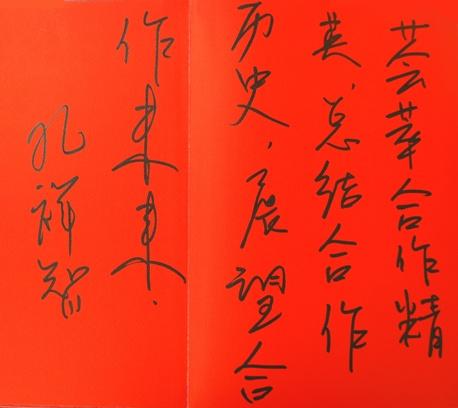 芸萃合作精
英,总结合作
历史,展望合
作未来.
孔祥智